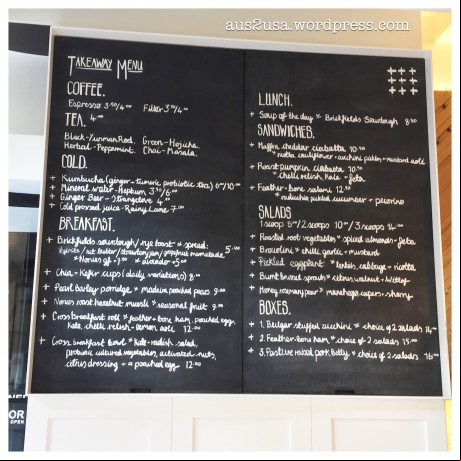 aus2usa.wordpress.com
TAKEAWAY MENU
COFFEE.
Espresso 3.50/4.00 Filter 3.50/4.00
TEA. 4.00
Black-Yunnan Red. Green-Hojicha.
Herbal-Peppermint. Chai-Masala.
COLD.
+ Kumbucha (ginger-tumeric probiotic tea) 6/10.00
+ Mineral water - Heptum
+ Ginger Beer - Strangelove
+ Cold pressed juice - Rainy Lane 7.00
BREAKFAST.
+ Brickfields sourdough/rye toast * spread:
butter/strawberry jam/grapefruit marmalade 5.00
+ Chia-Kefir cups (daily variations) 8.00
+ Pearl barley porridge * madeira poached pear 9.00
+ roast hazelnut muesli * seasonal fruit 9.00
+ breakfast roll * feather + bone ham, poached egg,
kale, chilli relish - lemon aioli 12.00
+ breakfast bowl * Kale - radish salad,
probiotic cultured vegetables, activated nuts,
citrus dressing + a poached egg 12.00
LUNCH.
+ Soup of the day * Brickfields Sourdough 8.50
SANDWICHES.
+ Maffra cheddar ciabatta 10.50
* cauliflower - zucchini pickle - mustard aioli
+ Roast pumpkin ciabatta 10.50
* chilli relish, Kale + feta
+ Feather + bone salami 12.50
* pickled cucumber - pecorino
SALADS
1 scoop 2 scoops 10.00/3 scoops 14.00
+ Roasted root vegetables * spiced almonds - feta
+ Broccolini * chilli - garlic - mustard
+ Pickled eggplant * lentils, cabbage + ricotta
+ Burnt brussel sprouts * citrus, walnut
+ Honey rosemary pear * manchego - capers - sherry
BOXES.
+ 1. Bulgar stuffed zucchini * choice of 2 salads 14.00
+ 2. Feather + bone ham * choice of 2 salads 15.00
+ 3. Pasture raised pork belly * choice of 2 salads 16.00
OR
OPEN